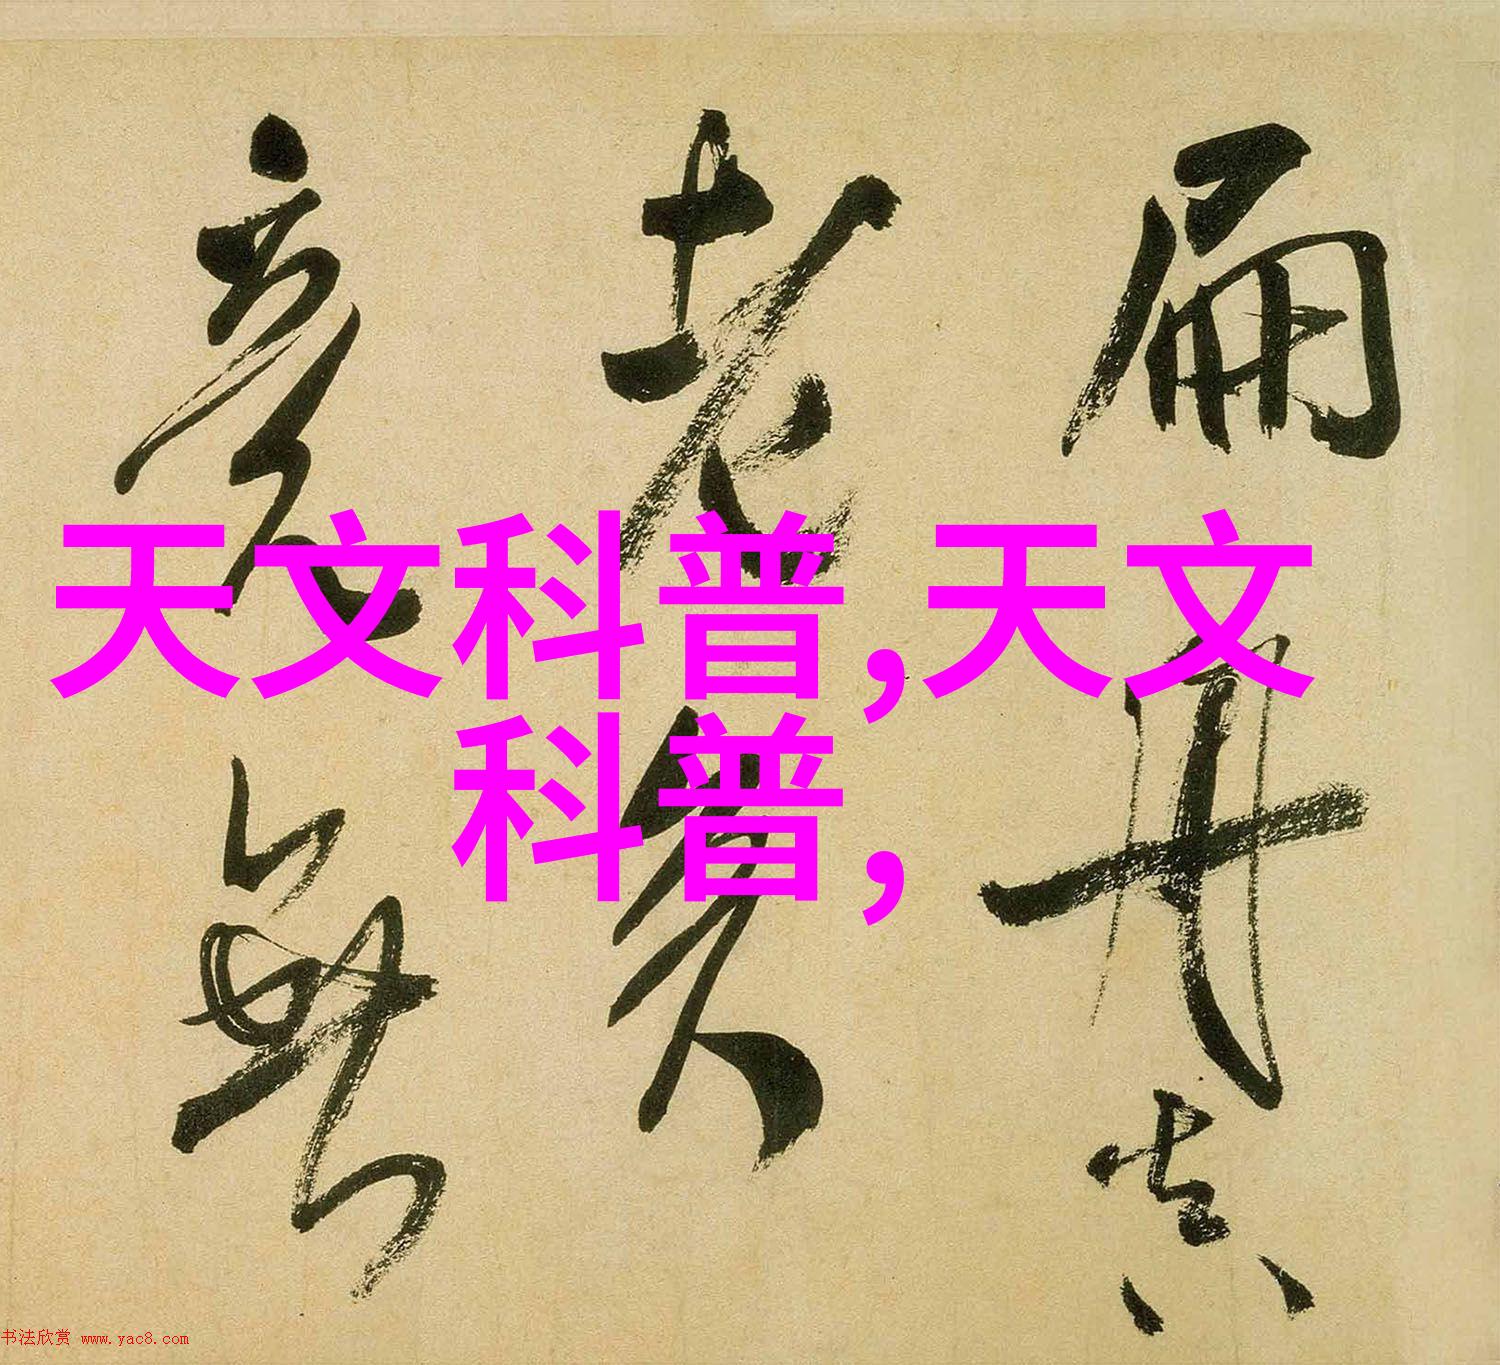 天文科普,天文
科普,
扁舟
老矣
無
书法欣赏 www.yac8.com